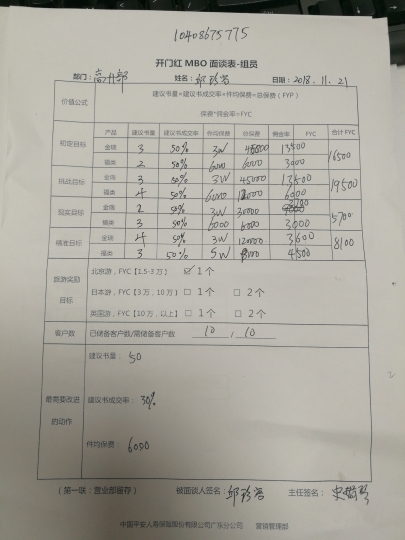 10408675775
开门红 MBO 面谈表-组员
部门：高升部 姓名：邱珍 日期：2018.11.21
价值公式 建议书量×建议书成交率×件均保费=总保费（FYP）
保费*佣金率=FYC
产品 建议书量 建议书成交率 件均保费 总保费 佣金率 FYC 合计 FYC
稳定目标 金瑞 3 50% 3W 45000 13500 16500
福类 2 50% 6000 6000 3000
挑战目标 金瑞 3 50% 3W 45000 13500 19500
福类 4 50% 6000 12000 6000
现实目标 金瑞 2 50% 3W 30000 5700
福类 3 50% 6000 6000 3000
精准目标 金瑞 4 50% 3W 12000 3600 8100
福类 3 50% 5W 4500
旅游奖励 目标 北京游，FYC【1.5-3 万） ☑ 1 个
日本游，FYC【3 万，10 万） □ 1 个 □ 2 个
英国游，FYC【10 万，以上】 □ 1 个 □ 2 个
客户数 已储备客户数/需储备客户数 10 , 10
最需要改进的动作
建议书量：50
建议书成交率：30%
件均保费：6000
（第一联：营业部留存） 被面谈人签名：邱珍 主任签名：
中国平安人寿保险股份有限公司广东分公司 营销管理部